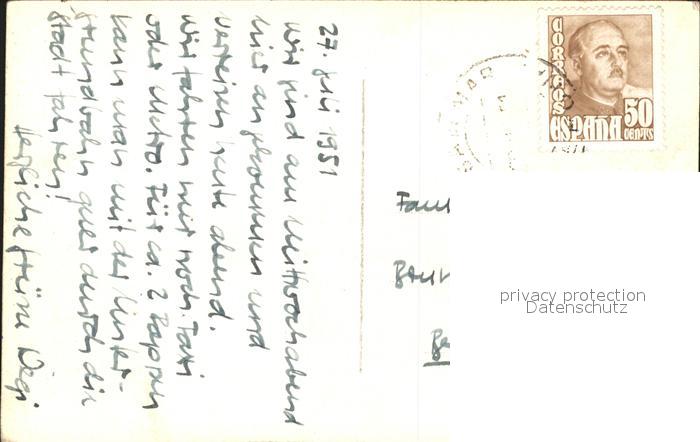 27. Juli 1951
Wir sind am Mittwochabend
hier angekommen und
verreisen heute abend.
Wir fahren nur noch Taxi
oder Metro. Für ca. 2 Rappen
kann man mit der Unter-
grundbahn quer durch die
Stadt fahren!
Herzliche Grüsse
CORREOS
50
CENTS
ESPAÑA
Fam
Be
privacy protection
Datenschutz